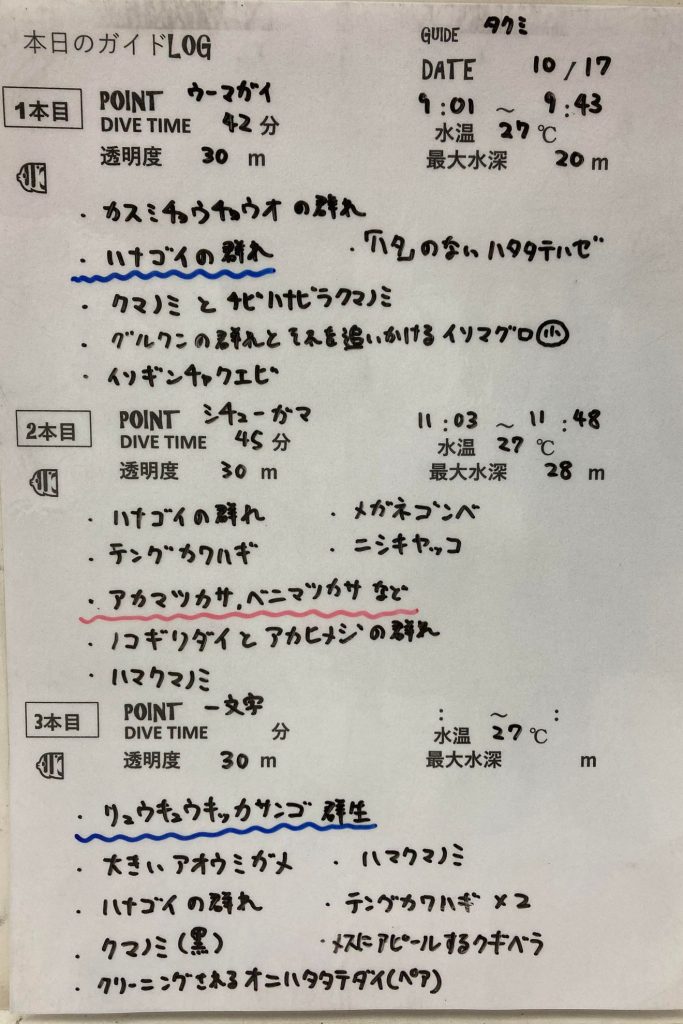 本日のガイドLOG
GUIDE タクミ
DATE 10/17
1本目 POINT ウーマガイ 9:01 ～ 9:43
DIVE TIME 42分 水温 27℃
透明度 30m 最大水深 20m
・カスミチョウチョウオの群れ
・ハナゴイの群れ ・「ハタ」のないハタタテハゼ
・クマノミとチビハナビラクマノミ
・グルクンの群れとそれを追いかけるイソマグロ小
・イソギンチャクエビ
2本目 POINT シチューガマ 11:03 ～ 11:48
DIVE TIME 45分 水温 27℃
透明度 30m 最大水深 28m
・ハナゴイの群れ ・メガネゴンベ
・テングカワハギ ・ニシキヤッコ
・アカマツカサ、ベニマツカサなど
・ノコギリダイとアカヒメジの群れ
・ハマクマノミ
3本目 POINT 一文字 : ～ :
DIVE TIME 分 水温 27℃
透明度 30m 最大水深 m
・リュウキュウキッカサンゴ 群生
・大きいアオウミガメ ・ハマクマノミ
・ハナゴイの群れ ・テングカワハギ×2
・クマノミ(黒) ・メスにアピールするクギベラ
・クリーニングされるオニハタタテダイ(ペア)